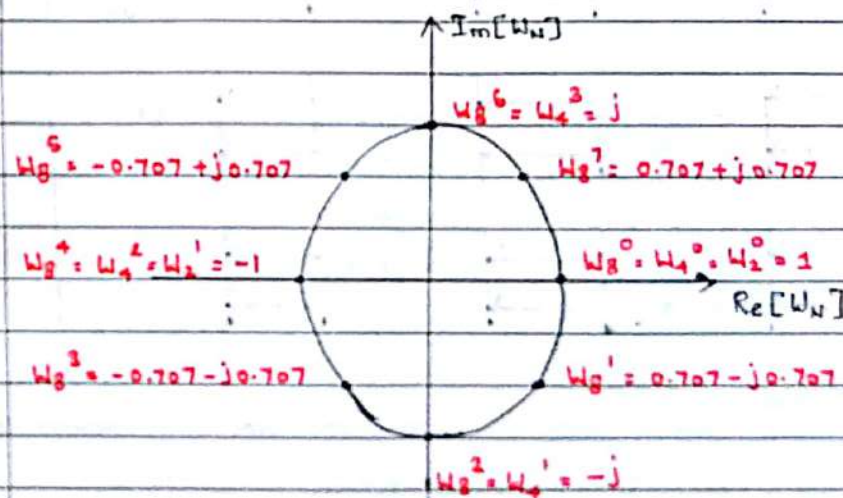 Im[W_N]
W_8^6 = W_4^3 = j
W_8^5 = -0.707+j0.707
W_8^7 = 0.707+j0.707
W_8^4 = W_4^2 = W_2^1 = -1
W_8^0 = W_4^0 = W_2^0 = 1
Re[W_N]
W_8^3 = -0.707-j0.707
W_8^1 = 0.707-j0.707
W_8^2 = W_4^1 = -j